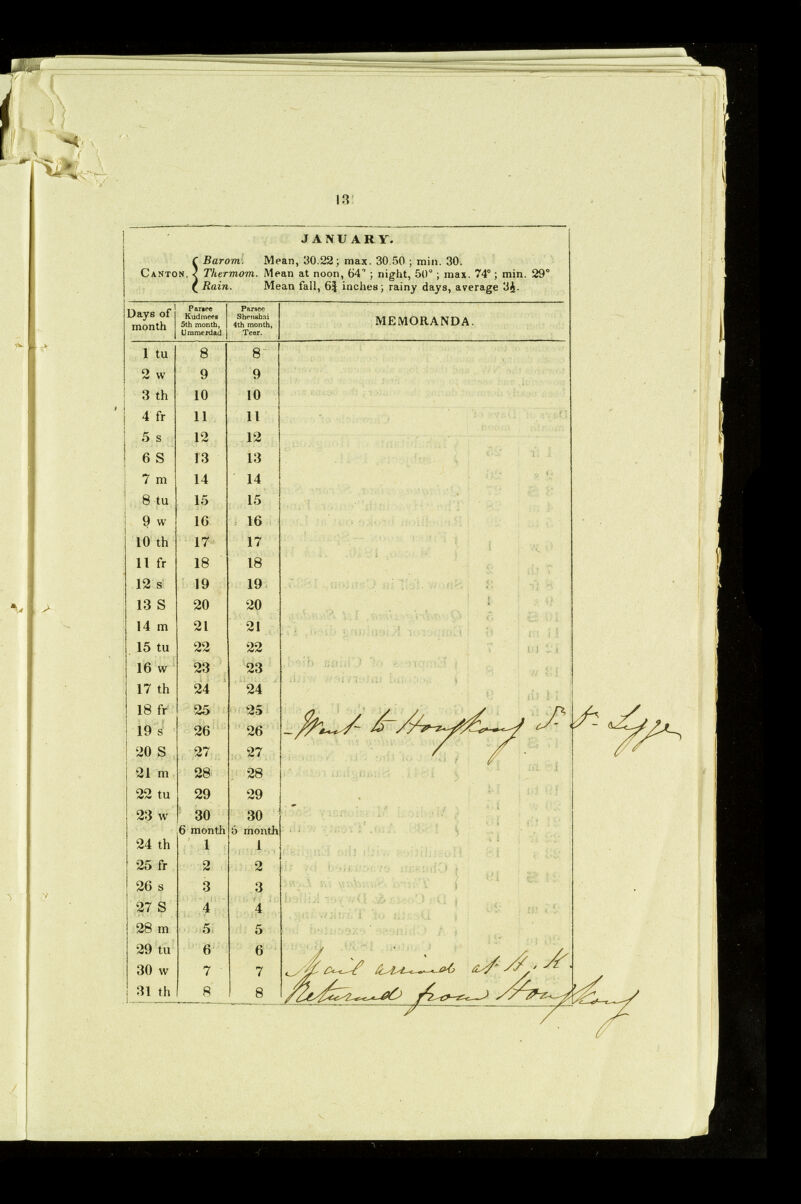 13
JANUARY.
CANTON. { Barom. Mean, 30.22; max. 30.50; min. 30.
Thermom. Mean at noon, 64°; night, 50°; max. 74°; min. 29°
Rain. Mean fall, 6¾ inches; rainy days, average 3½.
Days of month | Parsee Kudmees 5th month, Ummerdad | Parsee Shenshai 4th month, Teer. | MEMORANDA.
1 tu 8 8
2 w 9 9
3 th 10 10
4 fr 11 11
5 s 12 12
6 S 13 13
7 m 14 14
8 tu 15 15
9 w 16 16
10 th 17 17
11 fr 18 18
12 s 19 19
13 S 20 20
14 m 21 21
15 tu 22 22
16 w 23 23
17 th 24 24
18 fr 25 25
19 s 26 26 - Went to Hongkong Dr. Legge
20 S 27 27
21 m 28 28
22 tu 29 29
23 w 30 30
6 month 5 month
24 th 1 1
25 fr 2 2
26 s 3 3
27 S 4 4
28 m 5 5
29 tu 6 6
30 w 7 7 Mail arrived at H. K.
31 th 8 8 Returned from Hongkong